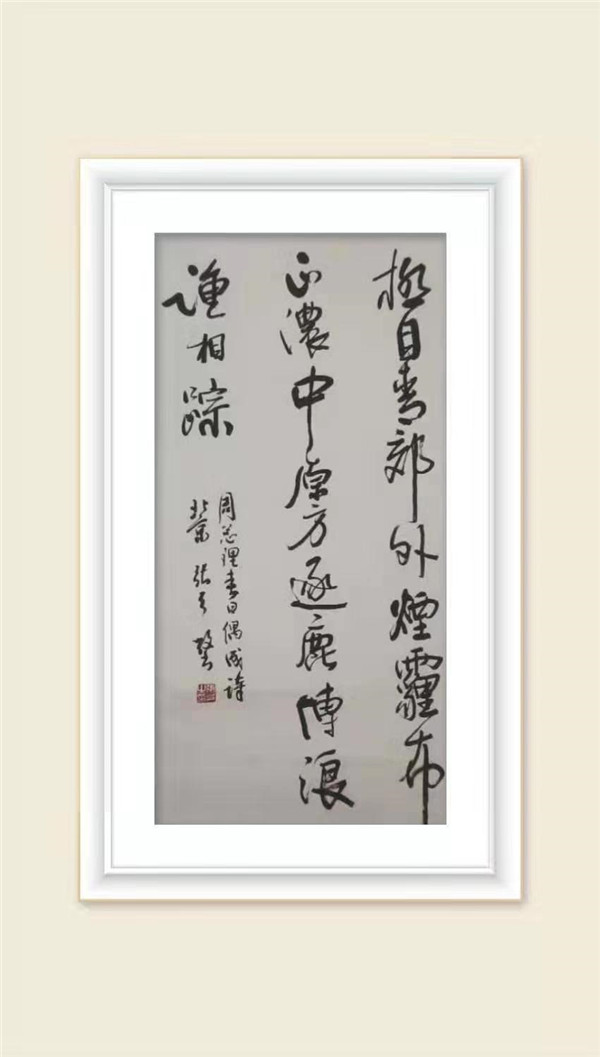 極目青郊外煙霾布
正濃中原方逐鹿博浪
踵相踪
周总理春日偶成詩
北京 張